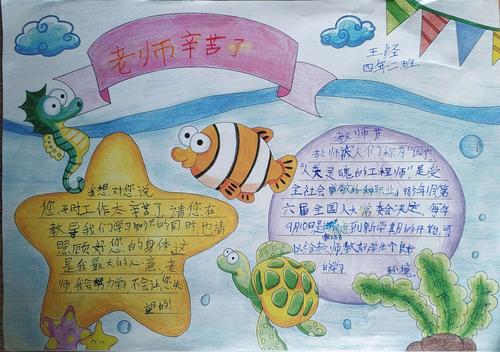 老师辛苦了
王经
四年二班
我想对您说
您平时工作太辛苦了,请您在
教导我们学习知识的同时也请
照顾好您的身体,这
是我最大的心意,老
师我会努力学,不会让您失
望的!
教师节
教师被人们称为"园丁"
"人类灵魂的工程师"是受
全社会尊敬的一种职业。1985年1月第
六届全国人大常委会决定,每年
9月10日是
到新学期的开始,可
以给教师教好学生个良好
的学习 环境